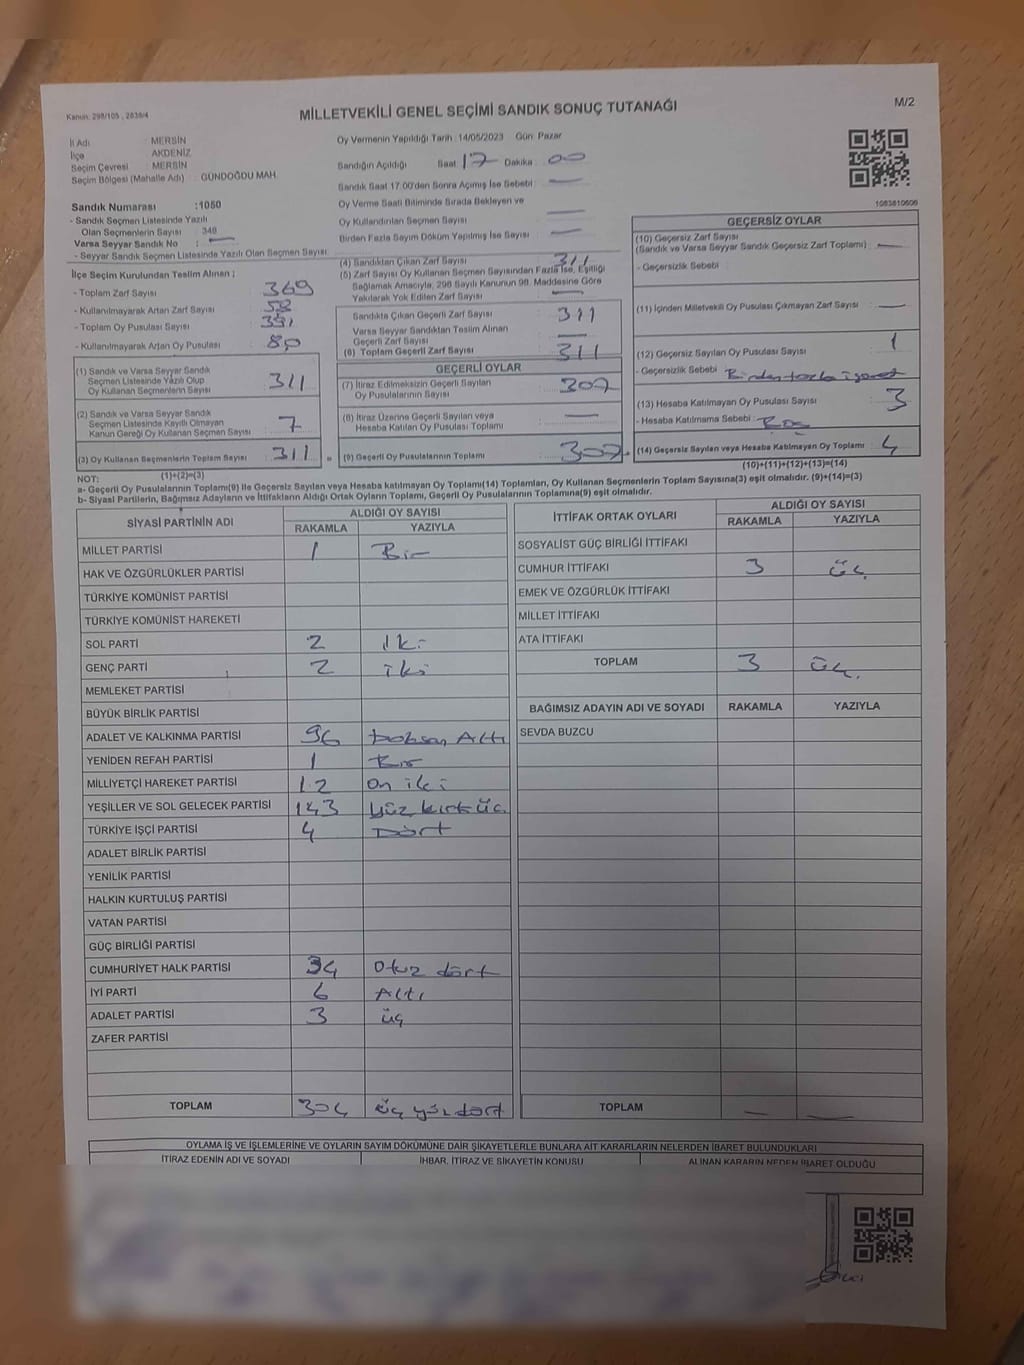 Kanun: 298/105 , 2839/4
MİLLETVEKİLİ GENEL SEÇİMİ SANDIK SONUÇ TUTANAĞI
M/2
İl Adı : MERSİN
İlçe : AKDENİZ
Seçim Çevresi : MERSİN
Seçim Bölgesi (Mahalle Adı) : GÜNDOĞDU MAH.
Sandık Numarası :1050
- Sandık Seçmen Listesinde Yazılı
Olan Seçmenlerin Sayısı : 349
Varsa Seyyar Sandık No : —
- Seyyar Sandık Seçmen Listesinde Yazılı Olan Seçmen Sayısı:
Oy Vermenin Yapıldığı Tarih : 14/05/2023 Gün: Pazar
Sandığın Açıldığı Saat 17 Dakika 00
Sandık Saat 17.00'den Sonra Açımış İse Sebebi : —
Oy Verme Saati Bitiminde Sırada Bekleyen ve
Oy Kullandırılan Seçmen Sayısı : —
Birden Fazla Sayım Döküm Yapılmış İse Sayısı : —
1083810606
İlçe Seçim Kurulundan Teslim Alınan ;
- Toplam Zarf Sayısı : 369
- Kullanılmayarak Artan Zarf Sayısı : 58
- Toplam Oy Pusulası Sayısı : 391
- Kullanılmayarak Artan Oy Pusulası : 80
(1) Sandık ve Varsa Seyyar Sandık
Seçmen Listesinde Yazılı Olup
Oy Kullanan Seçmenlerin Sayısı : 311
(2) Sandık ve Varsa Seyyar Sandık
Seçmen Listesinde Kayıtlı Olmayan
Kanun Gereği Oy Kullanan Seçmen Sayısı : 7
(3) Oy Kullanan Seçmenlerin Toplam Sayısı : 311
(1)+(2)=(3)
(4) Sandıktan Çıkan Zarf Sayısı : 311
(5) Zarf Sayısı Oy Kullanan Seçmen Sayısından Fazla İse, Eşitliği
Sağlamak Amacıyla, 298 Sayılı Kanunun 98. Maddesine Göre
Yakılarak Yok Edilen Zarf Sayısı : —
Sandıkta Çıkan Geçerli Zarf Sayısı : 311
Varsa Seyyar Sandıktan Teslim Alınan
Geçerli Zarf Sayısı : —
(6) Toplam Geçerli Zarf Sayısı : 311
GEÇERLİ OYLAR
(7) İtiraz Edilmeksizin Geçerli Sayılan
Oy Pusulalarının Sayısı : 307
(8) İtiraz Üzerine Geçerli Sayılan veya
Hesaba Katılan Oy Pusulası Toplamı : —
= (9) Geçerli Oy Pusulalarının Toplamı : 307 +
GEÇERSİZ OYLAR
(10) Geçersiz Zarf Sayısı
(Sandık ve Varsa Seyyar Sandık Geçersiz Zarf Toplamı) : —
- Geçersizlik Sebebi :
(11) İçinden Milletvekili Oy Pusulası Çıkmayan Zarf Sayısı : —
(12) Geçersiz Sayılan Oy Pusulası Sayısı : 1
- Geçersizlik Sebebi : Birden fazla işaret
(13) Hesaba Katılmayan Oy Pusulası Sayısı : 3
- Hesaba Katılmama Sebebi : Boş
(14) Geçersiz Sayılan veya Hesaba Katılmayan Oy Toplamı : 4
(10)+(11)+(12)+(13)=(14)
NOT:
a- Geçerli Oy Pusulalarının Toplamı(9) ile Geçersiz Sayılan veya Hesaba katılmayan Oy Toplamı(14) Toplamları, Oy Kullanan Seçmenlerin Toplam Sayısına(3) eşit olmalıdır. (9)+(14)=(3)
b- Siyasi Partilerin, Bağımsız Adayların ve İttifakların Aldığı Ortak Oyların Toplamı, Geçerli Oy Pusulalarının Toplamına(9) eşit olmalıdır.
SİYASİ PARTİNİN ADI ALDIĞI OY SAYISI
RAKAMLA YAZIYLA
MİLLET PARTİSİ 1 Bir
HAK VE ÖZGÜRLÜKLER PARTİSİ
TÜRKİYE KOMÜNİST PARTİSİ
TÜRKİYE KOMÜNİST HAREKETİ
SOL PARTİ 2 iki
GENÇ PARTİ 2 iki
MEMLEKET PARTİSİ
BÜYÜK BİRLİK PARTİSİ
ADALET VE KALKINMA PARTİSİ 96 Doksan Altı
YENİDEN REFAH PARTİSİ 1 Bir
MİLLİYETÇİ HAREKET PARTİSİ 12 On iki
YEŞİLLER VE SOL GELECEK PARTİSİ 143 yüz kırk üç
TÜRKİYE İŞÇİ PARTİSİ 4 Dört
ADALET BİRLİK PARTİSİ
YENİLİK PARTİSİ
HALKIN KURTULUŞ PARTİSİ
VATAN PARTİSİ
GÜÇ BİRLİĞİ PARTİSİ
CUMHURİYET HALK PARTİSİ 34 Otuz dört
İYİ PARTİ 6 Altı
ADALET PARTİSİ 3 üç
ZAFER PARTİSİ
TOPLAM 304 üç yüz dört
İTTİFAK ORTAK OYLARI ALDIĞI OY SAYISI
RAKAMLA YAZIYLA
SOSYALİST GÜÇ BİRLİĞİ İTTİFAKI
CUMHUR İTTİFAKI 3 üç
EMEK VE ÖZGÜRLÜK İTTİFAKI
MİLLET İTTİFAKI
ATA İTTİFAKI
TOPLAM 3 üç.
BAĞIMSIZ ADAYIN ADI VE SOYADI RAKAMLA YAZIYLA
SEVDA BUZCU
TOPLAM — —
OYLAMA İŞ VE İŞLEMLERİNE VE OYLARIN SAYIM DÖKÜMÜNE DAİR ŞİKAYETLERLE BUNLARA AİT KARARLARIN NELERDEN İBARET BULUNDUKLARI
İTİRAZ EDENİN ADI VE SOYADI İHBAR, İTİRAZ VE ŞİKAYETİN KONUSU ALINAN KARARIN NEDEN İBARET OLDUĞU